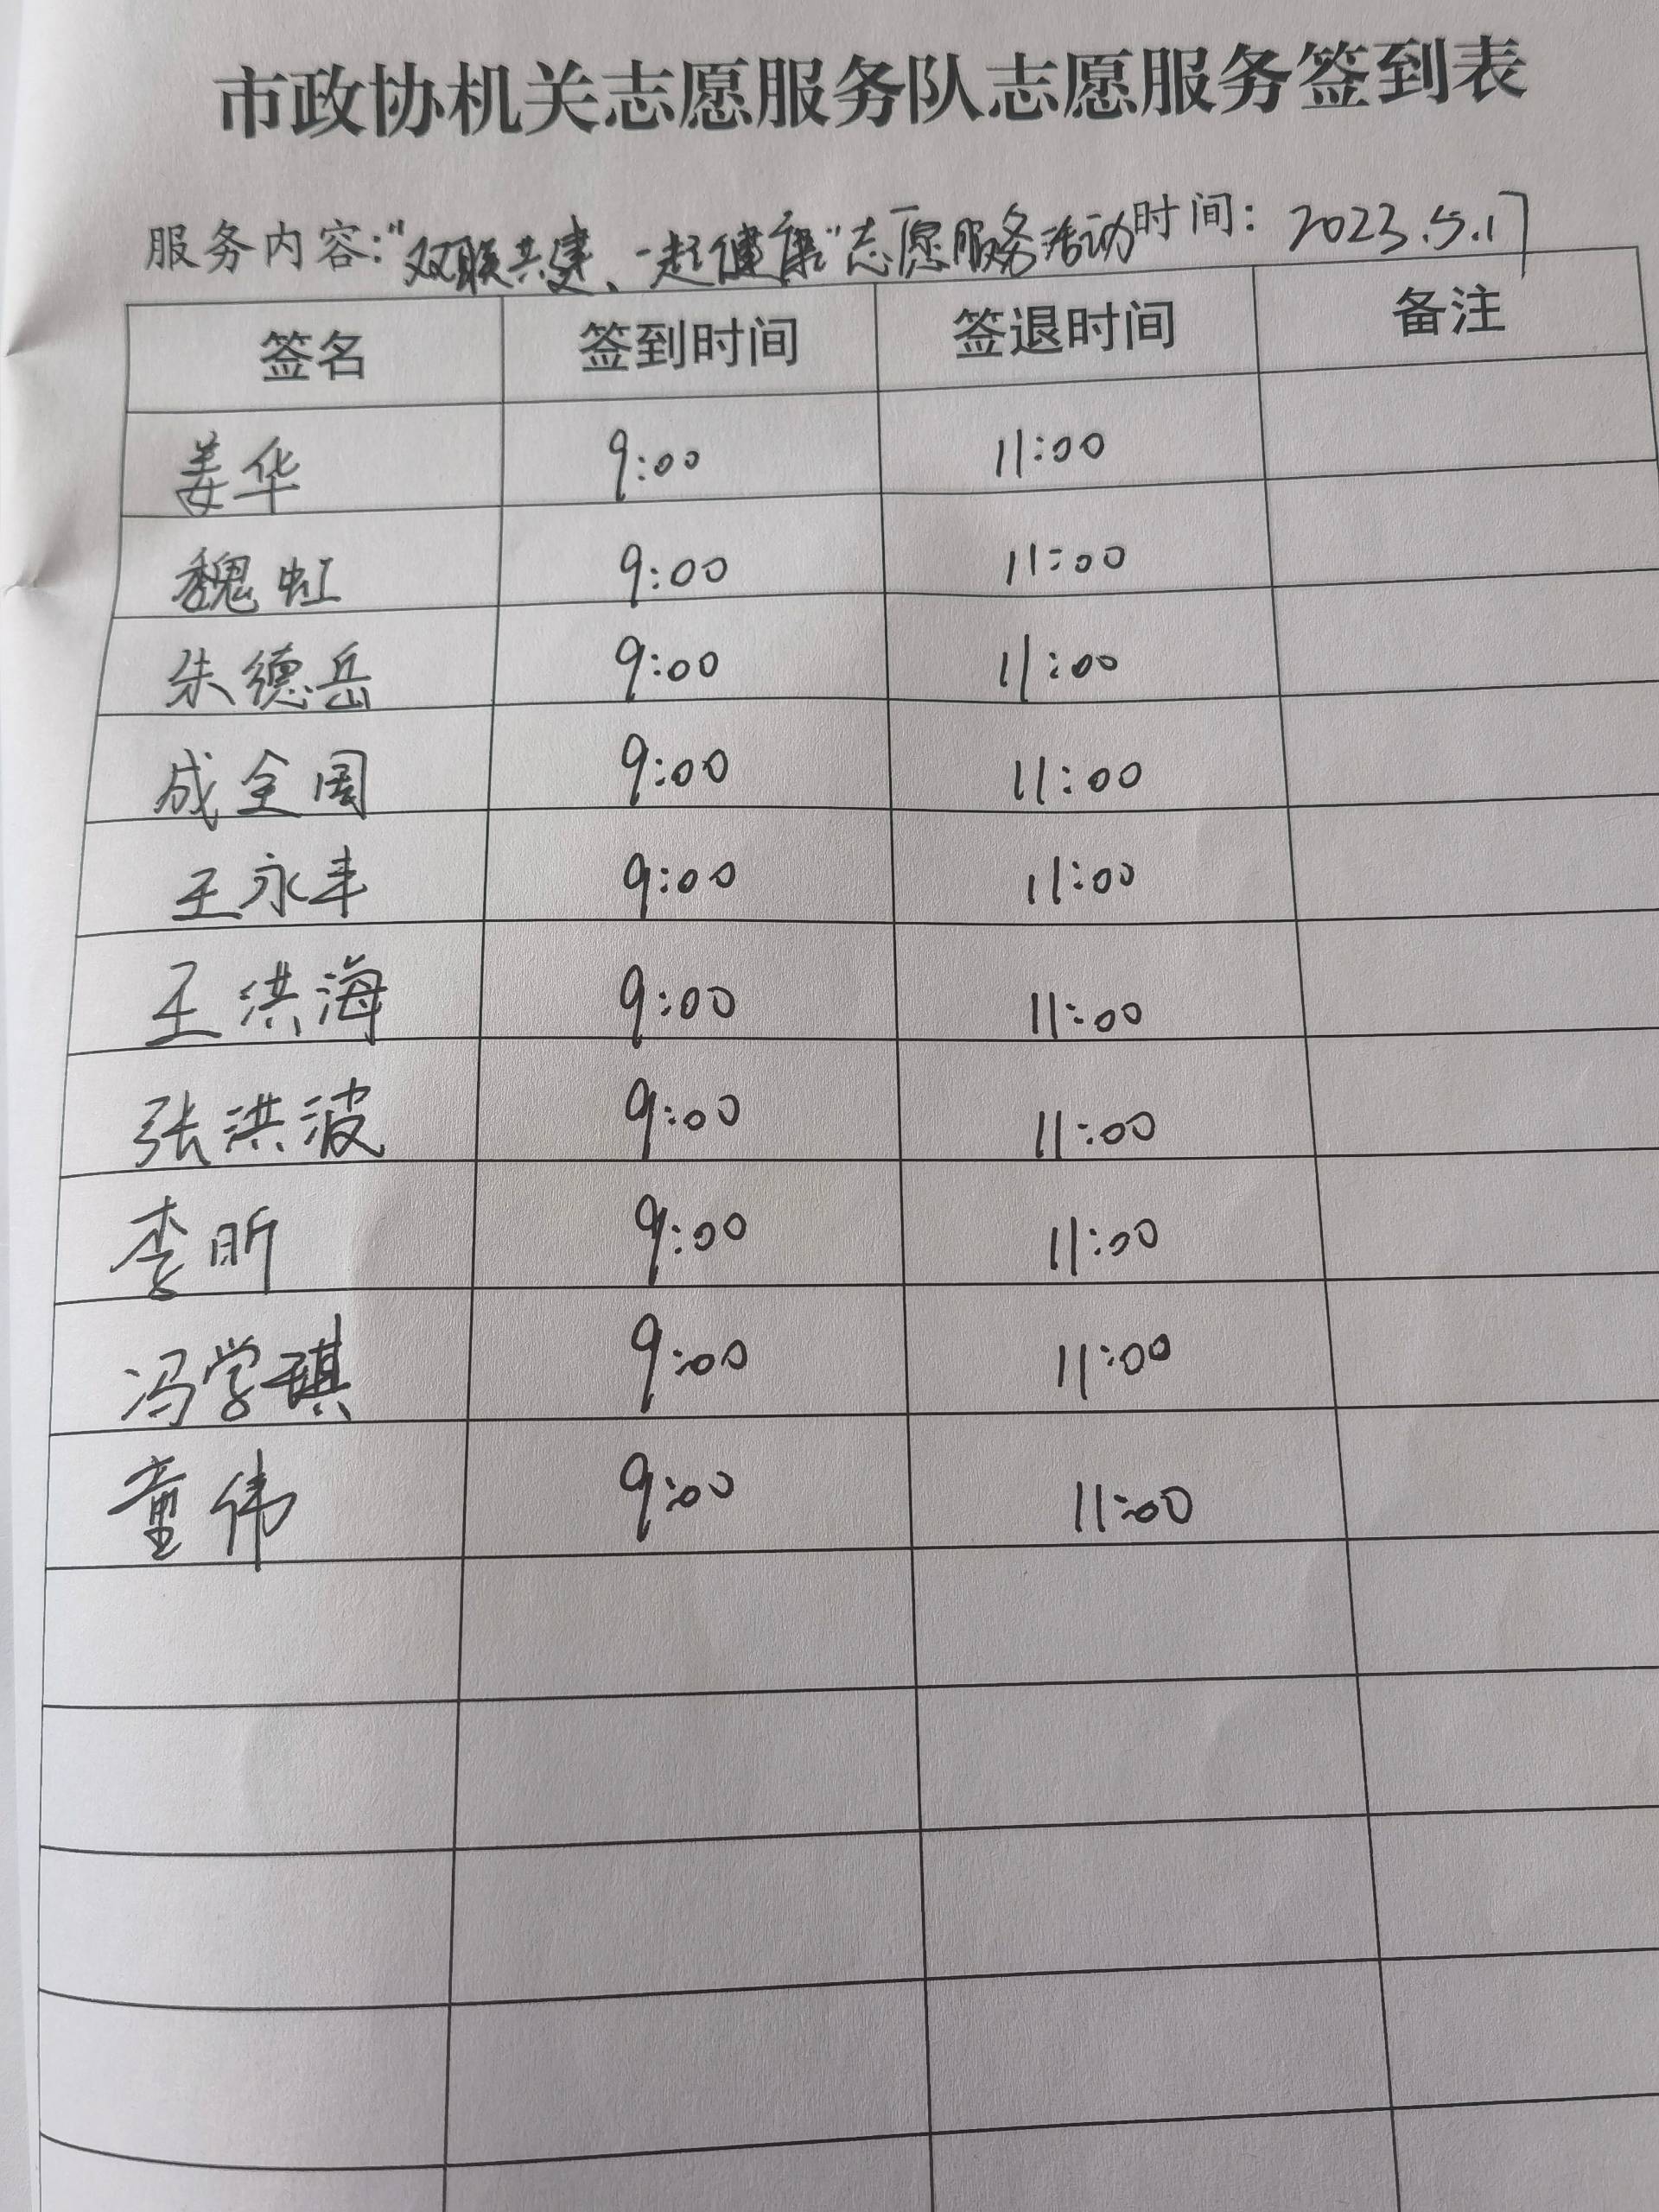 市政协机关志愿服务队志愿服务签到表
服务内容:“双联共建、一起健康”志愿服务活动 时间: 2023.5.17
签名 签到时间 签退时间 备注
姜华 9:00 11:00
魏虹 9:00 11:00
朱德岳 9:00 11:00
成全周 9:00 11:00
王永丰 9:00 11:00
王洪海 9:00 11:00
张洪波 9:00 11:00
李昕 9:00 11:00
冯学琪 9:00 11:00
童伟 9:00 11:00